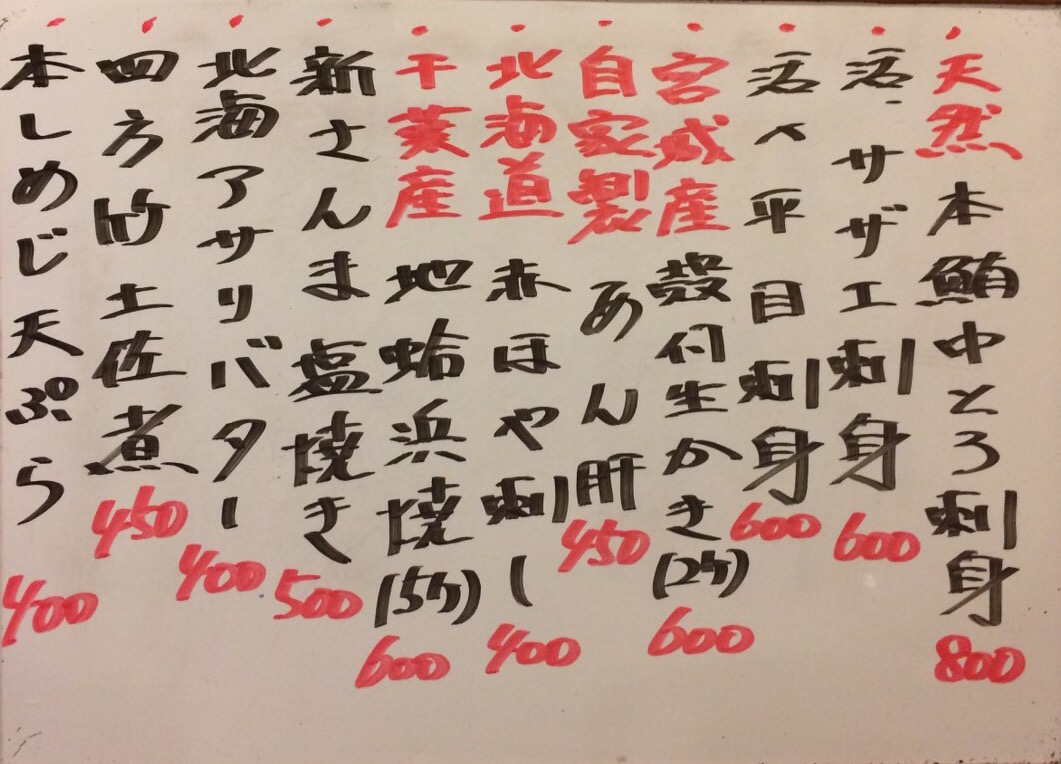 ・天然 本鮪中とろ刺身 800
・活・サザエ刺身 600
・活〆平目刺身 600
・宮城産 殻付生かき(2ケ) 600
・自家製 あん肝 450
・北海道 赤ほや刺し 400
・千葉産 地蛤浜焼(5ケ) 600
・新さんま塩焼き 500
・北海アサリバター 400
・四方竹土佐煮 450
・本しめじ天ぷら 400